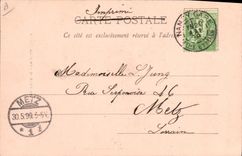 Imprimé
CARTE POSTALE
Ce côté est exclusivement réservé à l'adresse
NAN
Mademoiselle L. Jung
Rue Serpenoise 46
Metz
Lorraine
METZ
30.5.99. 5-6